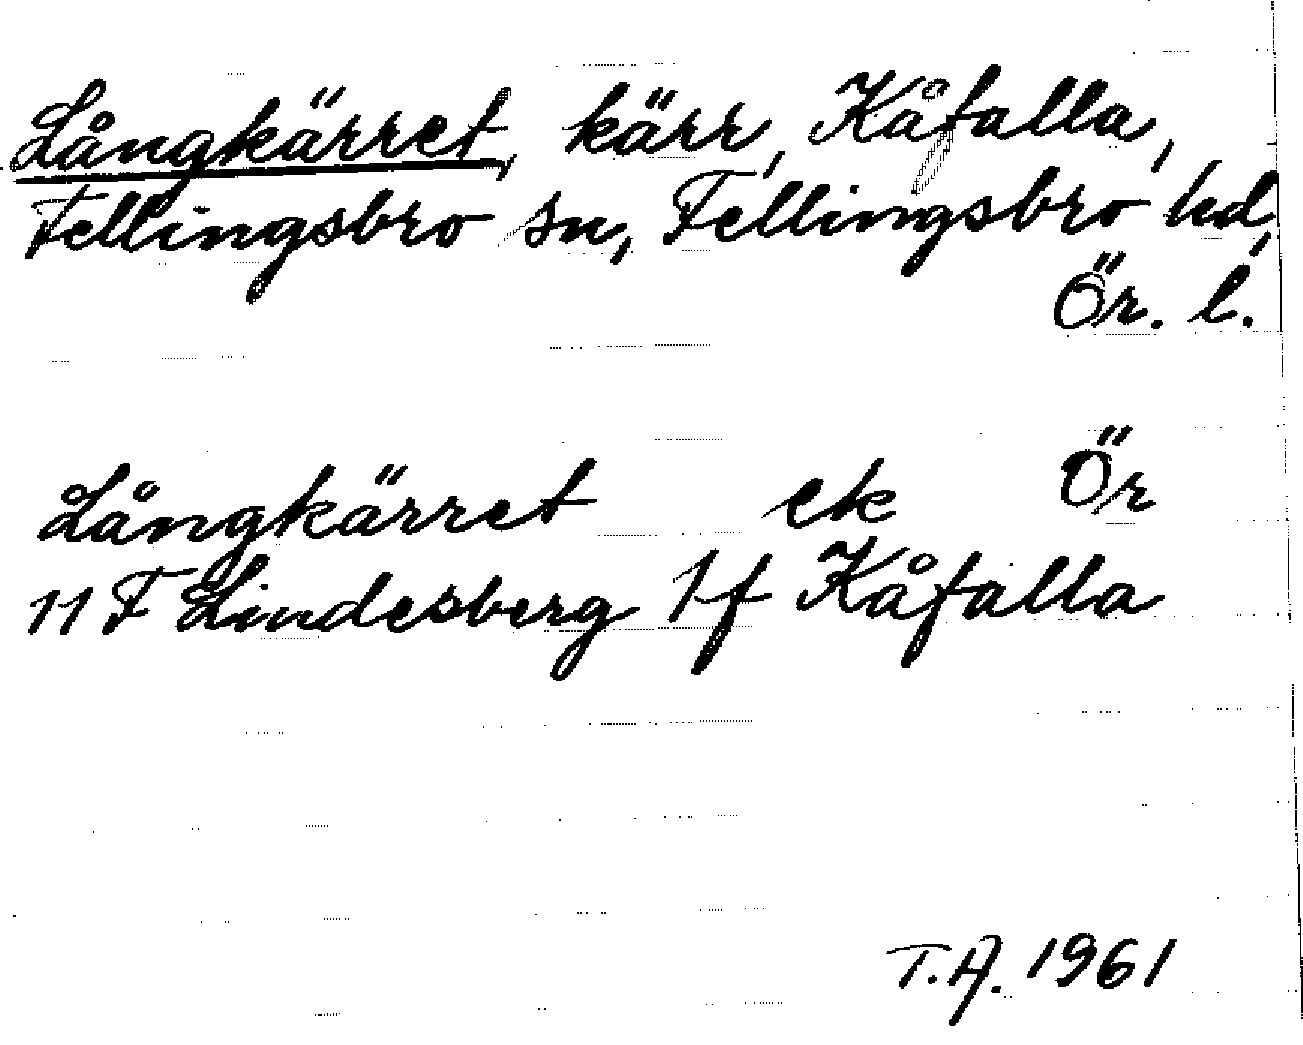 Långkärret, kärr, Kåfalla,
Fellingsbro sn, Fellingsbro hd,
Ör. l.
Långkärret ek Ör
11 F Lindesberg 1 f Kåfalla
T.A. 1961